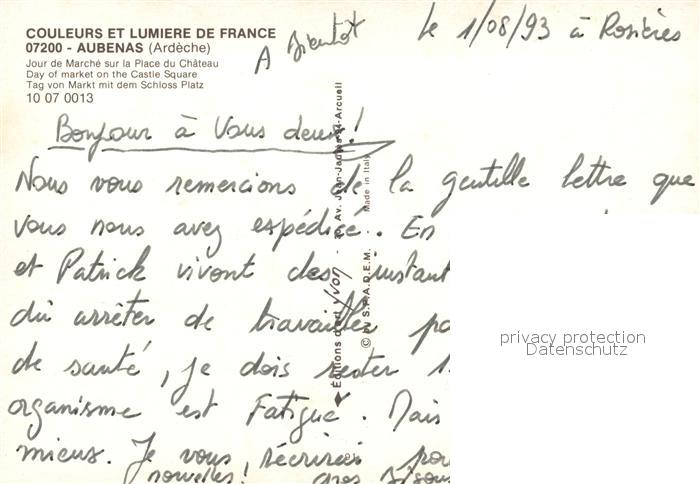 COULEURS ET LUMIERE DE FRANCE
07200 - AUBENAS (Ardèche)
Jour de Marché sur la Place du Château
Day of market on the Castle Square
Tag von Markt mit dem Schloss Platz
10 07 0013
A Bientôt
le 1/08/93 à Rosières
Bonjour à Vous deux!
Nous vous remercions de la gentille lettre que
vous nous avez expédiée. En
et Patrick vivont des instant
dû arrêter de travailler
de santé, je dois rester
organisme est Fatigué. Mais
mieux. Je vous récrirai
nouvelles! Gros bisou
Editions d'art YVON - Av. Jean-Jaurès - Arcueil
© by S.P.A.D.E.M. - Made in Italy
privacy protection
Datenschutz